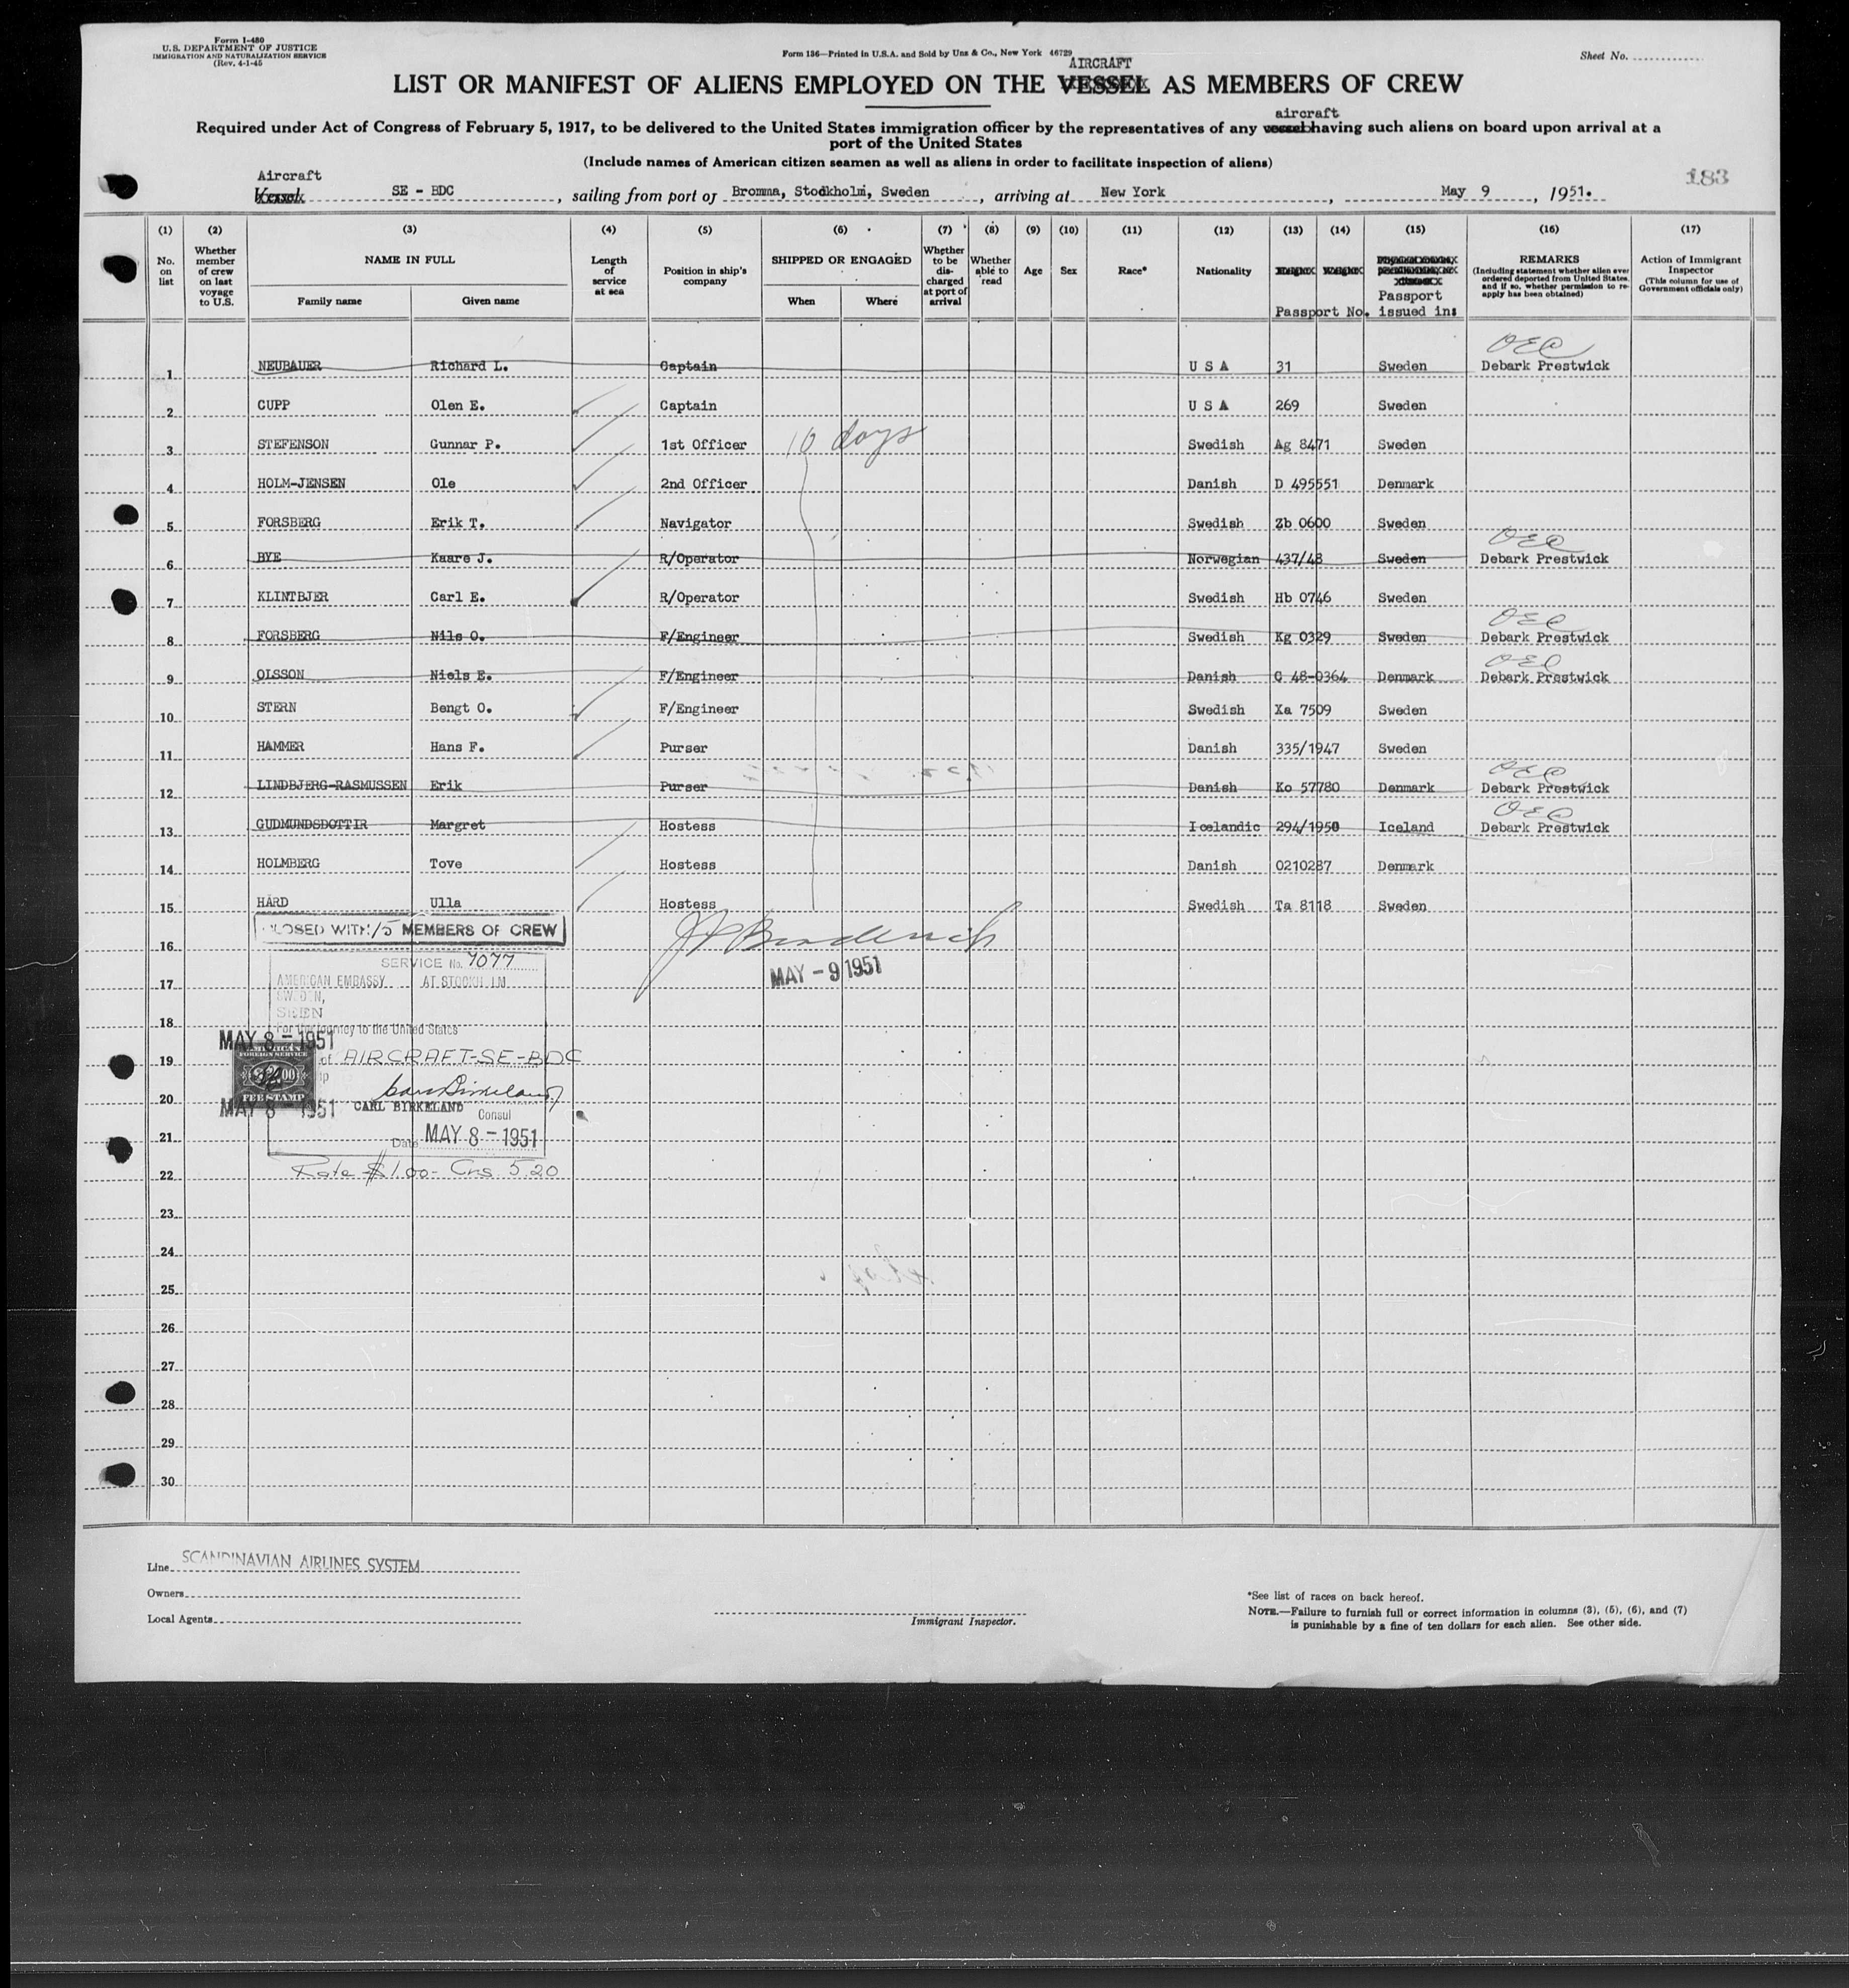 Form I-480
U.S. DEPARTMENT OF JUSTICE
IMMIGRATION AND NATURALIZATION SERVICE
(Rev. 4-1-45
Form 136—Printed in U.S.A. and Sold by Unz & Co., New York 46729
Sheet No.
AIRCRAFT
LIST OR MANIFEST OF ALIENS EMPLOYED ON THE VESSEL AS MEMBERS OF CREW
aircraft
Required under Act of Congress of February 5, 1917, to be delivered to the United States immigration officer by the representatives of any vessel having such aliens on board upon arrival at a
port of the United States
(Include names of American citizen seamen as well as aliens in order to facilitate inspection of aliens)
183
Aircraft
Vessel SE - BDC, sailing from port of Bromma, Stockholm, Sweden, arriving at New York, May 9, 1951.
(1) (2) (3) (4) (5) (6) (7) (8) (9) (10) (11) (12) (13) (14) (15) (16) (17)
No. on list
Whether member of crew on last voyage to U.S.
NAME IN FULL
Family name
Given name
Length of service at sea
Position in ship's company
SHIPPED OR ENGAGED
When
Where
Whether to be discharged at port of arrival
Whether able to read
Age
Sex
Race*
Nationality
Passport No.
Passport issued in:
REMARKS
(Including statement whether alien ever ordered deported from United States, and if so, whether permission to re-apply has been obtained)
Action of Immigrant Inspector
(This column for use of Government officials only)
1 NEUBAUER Richard L. Captain U S A 31 Sweden Debark Prestwick
2 CUPP Olen E. Captain U S A 269 Sweden
3 STEFENSON Gunnar P. 1st Officer 10 days Swedish Ag 8471 Sweden
4 HOLM-JENSEN Ole 2nd Officer Danish D 495551 Denmark
5 FORSBERG Erik T. Navigator Swedish Zb 0600 Sweden
6 BYE Kaare J. R/Operator Norwegian 437/48 Sweden Debark Prestwick
7 KLINTBJER Carl E. R/Operator Swedish Hb 0746 Sweden
8 FORSBERG Nils O. F/Engineer Swedish Kg 0329 Sweden Debark Prestwick
9 OLSSON Niels E. F/Engineer Danish C 48-0364 Denmark Debark Prestwick
10 STERN Bengt O. F/Engineer Swedish Xa 7509 Sweden
11 HAMMER Hans F. Purser Danish 335/1947 Sweden
12 LINDBJERG-RASMUSSEN Erik Purser Danish Ko 57780 Denmark Debark Prestwick
13 GUDMUNDSDOTTIR Margret Hostess Icelandic 294/1950 Iceland Debark Prestwick
14 HOLMBERG Tove Hostess Danish 0210287 Denmark
15 HÅRD Ulla Hostess Swedish Ta 8118 Sweden
CLOSED WITH 15 MEMBERS OF CREW
16
SERVICE No. 7077
MAY - 9 1951
17
AMERICAN EMBASSY AT STOCKHOLM
SWEDEN,
SEEN
18
For the journey to the United States
MAY 8 - 1951
19
of AIRCRAFT-SE-BDC
AMERICAN
FOREIGN SERVICE
FEE STAMP
20
MAY 8 1951
CARL BIRKELAND Consul
21
Date MAY 8 - 1951
22
Rate $1.00 - Crs. 5.20
23
24
25
26
27
28
29
30
Line SCANDINAVIAN AIRLINES SYSTEM
Owners
Local Agents
Immigrant Inspector.
*See list of races on back hereof.
NOTE.—Failure to furnish full or correct information in columns (3), (5), (6), and (7)
is punishable by a fine of ten dollars for each alien. See other side.